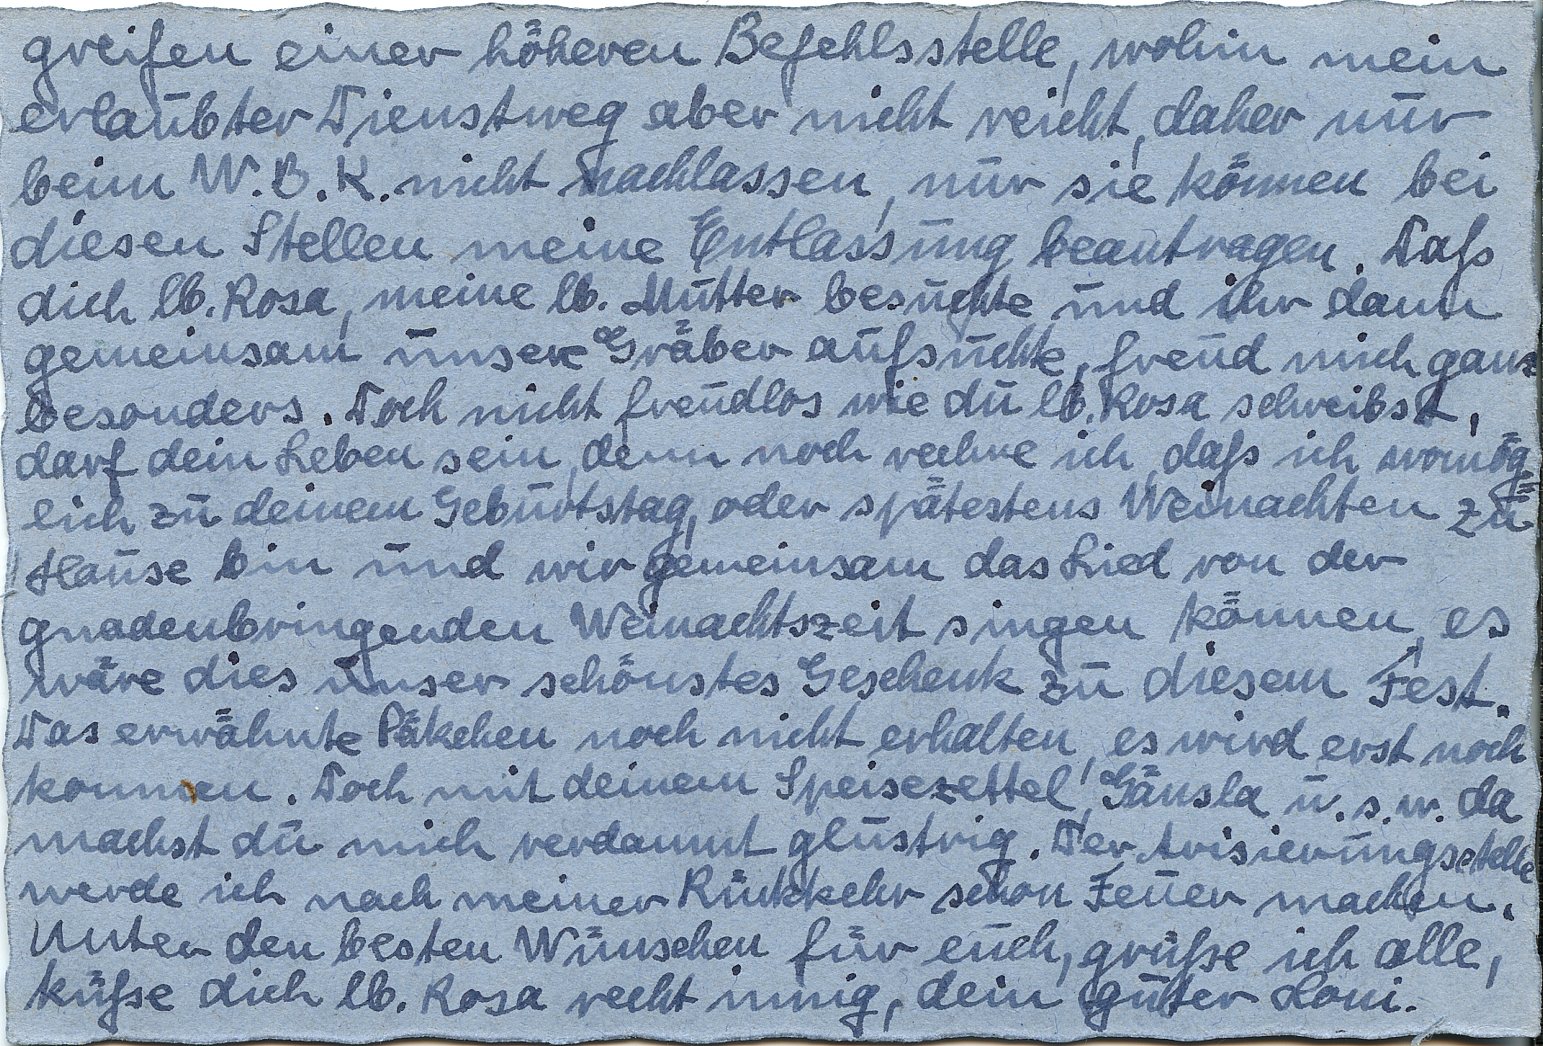 greifen einer höheren Befehlsstelle, wohin mein
erlaubter Dienstweg aber nicht reicht, daher nur
beim W.B.K. nicht nachlassen, nur sie können bei
diesen Stellen meine Entlassung beantragen. Daß
dich lb. Rosa, meine lb. Mutter besuchte und ihr dann
gemeinsam unsere Gräber aufsuchte, freud mich ganz
besonders. Doch nicht freudlos wie du lb. Rosa schreibst,
darf dein Leben sein, denn noch rechne ich, daß ich womög=
lich zu deinem Geburtstag, oder spätestens Weinachten zu
Hause bin und wir gemeinsam das Lied von der
gnadenbringenden Weinachtszeit singen können, es
wäre dies unser schönstes Geschenk zu diesem Fest.
Das erwähnte Päkchen noch nicht erhalten, es wird erst noch
kommen. Doch mit deinem Speisezettel, Gänsla u.s.w. da
machst du mich verdammt glustrig. Der Avisierungsstelle
werde ich nach meiner Rückkehr schon Feuer machen.
Unter den besten Wünschen für euch, grüße ich alle,
küße dich lb. Rosa recht innig, dein guter Loni.